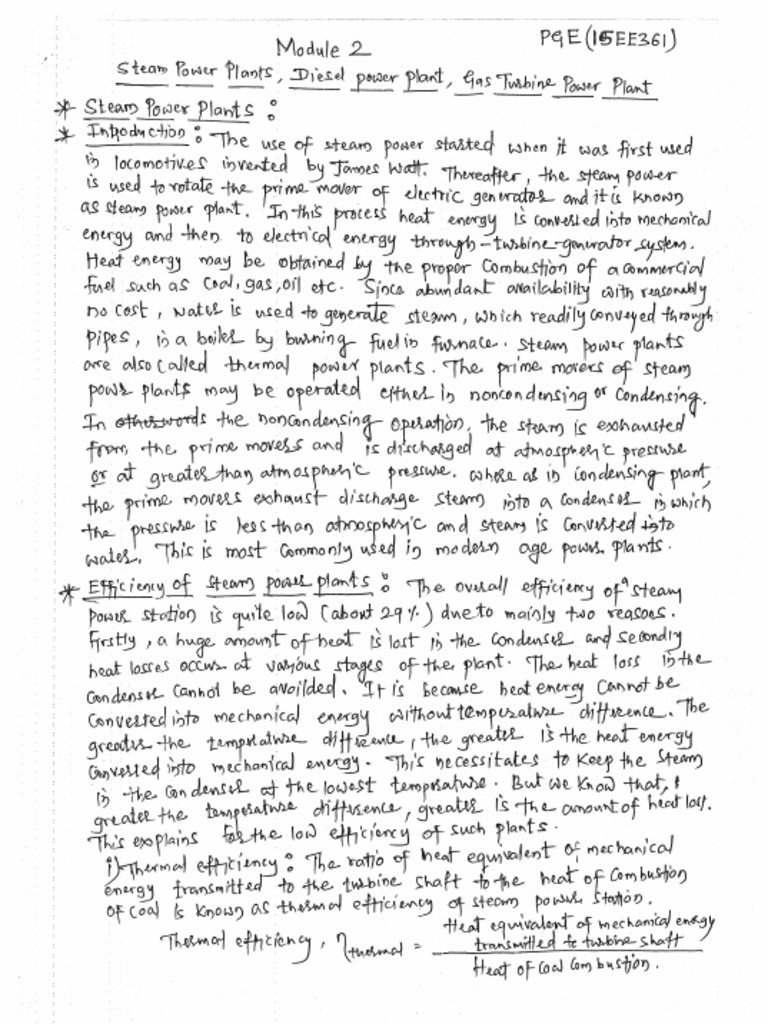 PGE(15EE361)
Module 2
Steam Power Plants, Diesel power plant, Gas Turbine Power Plant
* Steam Power Plants :
* Introduction : The use of steam power started when it was first used
in locomotives invented by James Watt. Thereafter, the steam power
is used to rotate the prime mover of electric generator and it is known
as steam power plant. In this process heat energy is converted into mechanical
energy and then to electrical energy through-turbine-generator system.
Heat energy may be obtained by the proper Combustion of a commercial
fuel such as Coal, gas, oil etc. Since abundant availability with reasonably
no cost, water is used to generate steam, which readily conveyed through
pipes, in a boiler by burning fuel in furnace. Steam power plants
are also called thermal power plants. The prime movers of steam
power plants may be operated either in noncondensing or Condensing.
In otherwords the noncondensing operation, the steam is exhausted
from the prime movers and is discharged at atmospheric pressure
or at greater than atmospheric pressure. where as in condensing plant,
the prime movers exhaust discharge steam into a condenser in which
the pressure is less than atmospheric and steam is Converted into
water. This is most commonly used in modern age power plants.
* Efficiency of steam power plants : The overall efficiency of a steam
power station is quite low (about 29%) due to mainly two reasons.
Firstly, a huge amount of heat is lost in the condenser and secondly
heat losses occurs at various stages of the plant. The heat loss in the
Condenser Cannot be availded. It is because heat energy Cannot be
Converted into mechanical energy without temperature difference. The
greater the temprature difference, the greater is the heat energy
Converted into mechanical energy. This necessitates to keep the steam
in the condenser at the lowest temperature. But we know that,
greater the temperature difference, greater is the amount of heat lost.
This explains for the low efficiency of such plants.
i) Thermal efficiency : The ratio of heat equivalent of mechanical
energy transmitted to the turbine shaft to the heat of Combustion
of Coal is known as thermal efficiency of steam power station.
Thermal efficiency, ηthermal = Heat equivalent of mechanical energy
transmitted to turbine shaft
Heat of Coal Combustion.